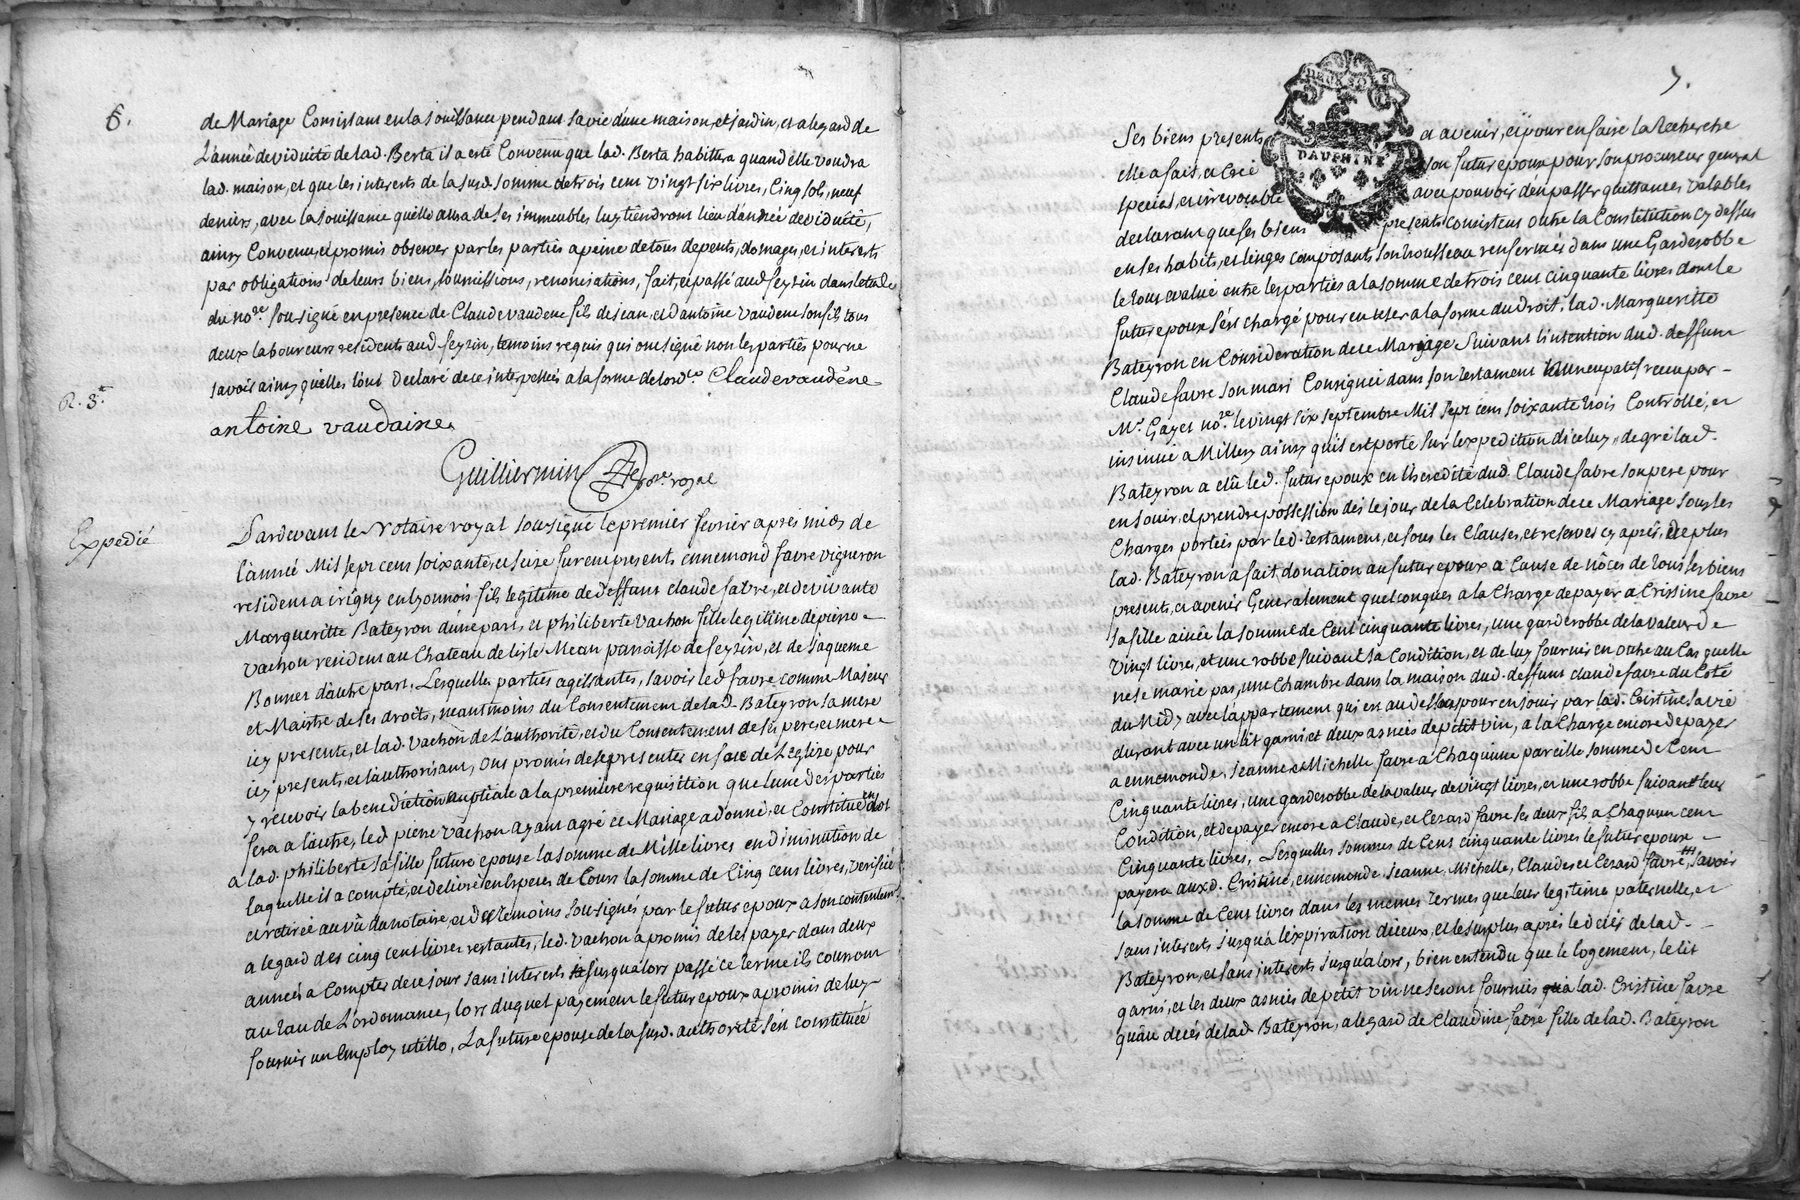 6.
de Mariage Consistant en la joüissance pendant sa vie d'une maison, et jardin, et a legard de
L'année de viduité de lad. Berta il a esté Convenu que lad. Berta habittera quand elle voudra
lad. maison, et que les interests de la susd. somme de trois cent vingt six livres, Cinq sols, neuf
deniers, avec la joüissance quelle aura de ses immeubles luy tiendront lieu d'année de viduité,
ainsy Convenu, et promis observer par les parties a peine de tous depents, domages, et interests
par obligations de leurs biens, soumissions, renonciations, fait, et passé aud. feyzin dans letude
du no.re sousigné en presence de Claude vaudene fils de jean, et d'antoine vaudene son fils tous
deux laboureurs residents aud feyzin, temoins requis qui ont signé non les parties pour ne
savoir ainsy quelles l'ont declaré de ce interpellées a la forme de lord.ce Claude vaudéne
R. 3.
antoine vaudaine
Guilliermin no.re royal
Expedié
Pardevant le Notaire royal sousigné le premier fevrier apres midy de
l'année Mil sept cent soixante, et seize furent presents ennemond favre vigneron
resident a irigny en lyonnois fils legitime de deffunt claude fabre, et de vivante
Margueritte Bateyron d'une part, et philiberte vachon fille legitime de pierre
vachon resident au Chateau de lisle Mean parroisse de feyzin, et de jaqueme
Bonnet d'autre part, Lesquelles parties agissantes, savoir led favre comme Majeur
et Maistre de ses droits, neantmoins du Consentement de lad. Bateyron sa mere
icy presente, et lad. vachon de L'authorité, et du Consentement de ses pere, et mere
icy presents, et l'authorisant, ont promis de se presenter en face de L'eglise pour
y recevoir la benediction nuptiale a la premiere requisition que l'une des parties
fera a l'autre, led. pierre vachon ayant agré ce Mariage a donné, et constitué en dot
a lad. philiberte sa fille future epouse la somme de Mille livres en diminution de
laquelle il a compté, et delivré en Especes de Cours la somme de Cinq cent livres, verifiée
et retirée au vû du notaire, et des temoins sousignés par le futur epoux a son contentement
a legard des cinq cent livres restantes, led. vachon a promis de les payer dans deux
années a Compter de ce jour sans interests jusqu'alors passé ce terme ils courront
au taux de L'ordonnance, lors duquel payement le futur epoux a promis de luy
fournir un Employ utille, La future epouse de la susd. authorité s'est constituée
7.
DEUX SOLS
DAUPHINE
Ses biens presents et avenir, et pour en faire la recherche
elle a fait, et Creé son futur epoux pour son procureur general
special, et irrevocable avec pouvoir d'en passer quittances valables
declarant que ses biens presents consistent outre la Constitution cy dessus
en ses habits, et linges composants son trousseau renfermés dans une Garderobbe
le tout evalué entre les parties a la somme de trois cent cinquante livres dont le
futur epoux s'est chargé pour en tester a la forme du droit, lad. Margueritte
Bateyron en Consideration de ce Mariage suivant l'intention dud. deffunt
Claude favre son mari Consignée dans son testament nuncupatif receu par
M.e Gayet no.re le vingt six septembre Mil sept cent soixante trois Controllé, et
insinué a Millery ainsy qu'il est porté sur l'expedition diceluy, de gré lad.
Bateyron a elû led. futur epoux en l'heredité dud. Claude fabre son pere pour
en jouir, et prendre possession dés le jour de la Celebration de ce Mariage sous les
Charges portées par led. testament, et sous les Clauses, et reserves cy aprés, de plus
lad. Bateyron a fait donation au futur epoux a Cause de nôces de tous ses biens
presents, et avenir Generalement quelconques a la Charge de payer a Cristine favre
sa fille ainée la somme de Cent cinquante livres, une garderobbe de la valeur de
vingt livres, et une robbe suivant sa Condition, et de luy fournir en outre au Cas quelle
ne se marie pas, une Chambre dans la maison dud. deffunt claude favre du Coté
du Midy avec l'appartement qui est au dessus pour en jouir par lad. Cristine sa vie
durant avec un lit garni et deux asnées de petit vin, a la Charge encore de payer
a ennemonde, jeanne et Michelle favre a Chaquune pareille somme de Cent
Cinquante livres, une garderobbe de la valeur de vingt livres, et une robbe suivant leur
Condition, et de payer encore a Claude, et Cezard favre ses deux fils a Chaquun cent
Cinquante livres, Lesquelles sommes de Cent cinquante livres le futur epoux
payera auxd. Cristine, ennemonde, jeanne, Michelle, Claude et Cezard favre, savoir
la somme de Cent livres dans les memes termes que leur legitime paternelle, et
sans interets jusqu'a l'expiration diceux, et le surplus aprés le décés de lad.
Bateyron, et sans interêts jusqu'alors, bien entendu que le logement, le lit
garni, et les deux asnées de petit vin ne seront fournies a lad. Cristine favre
qu'au decés de lad. Bateyron, a legard de Claudine fabre fille de lad. Bateyron